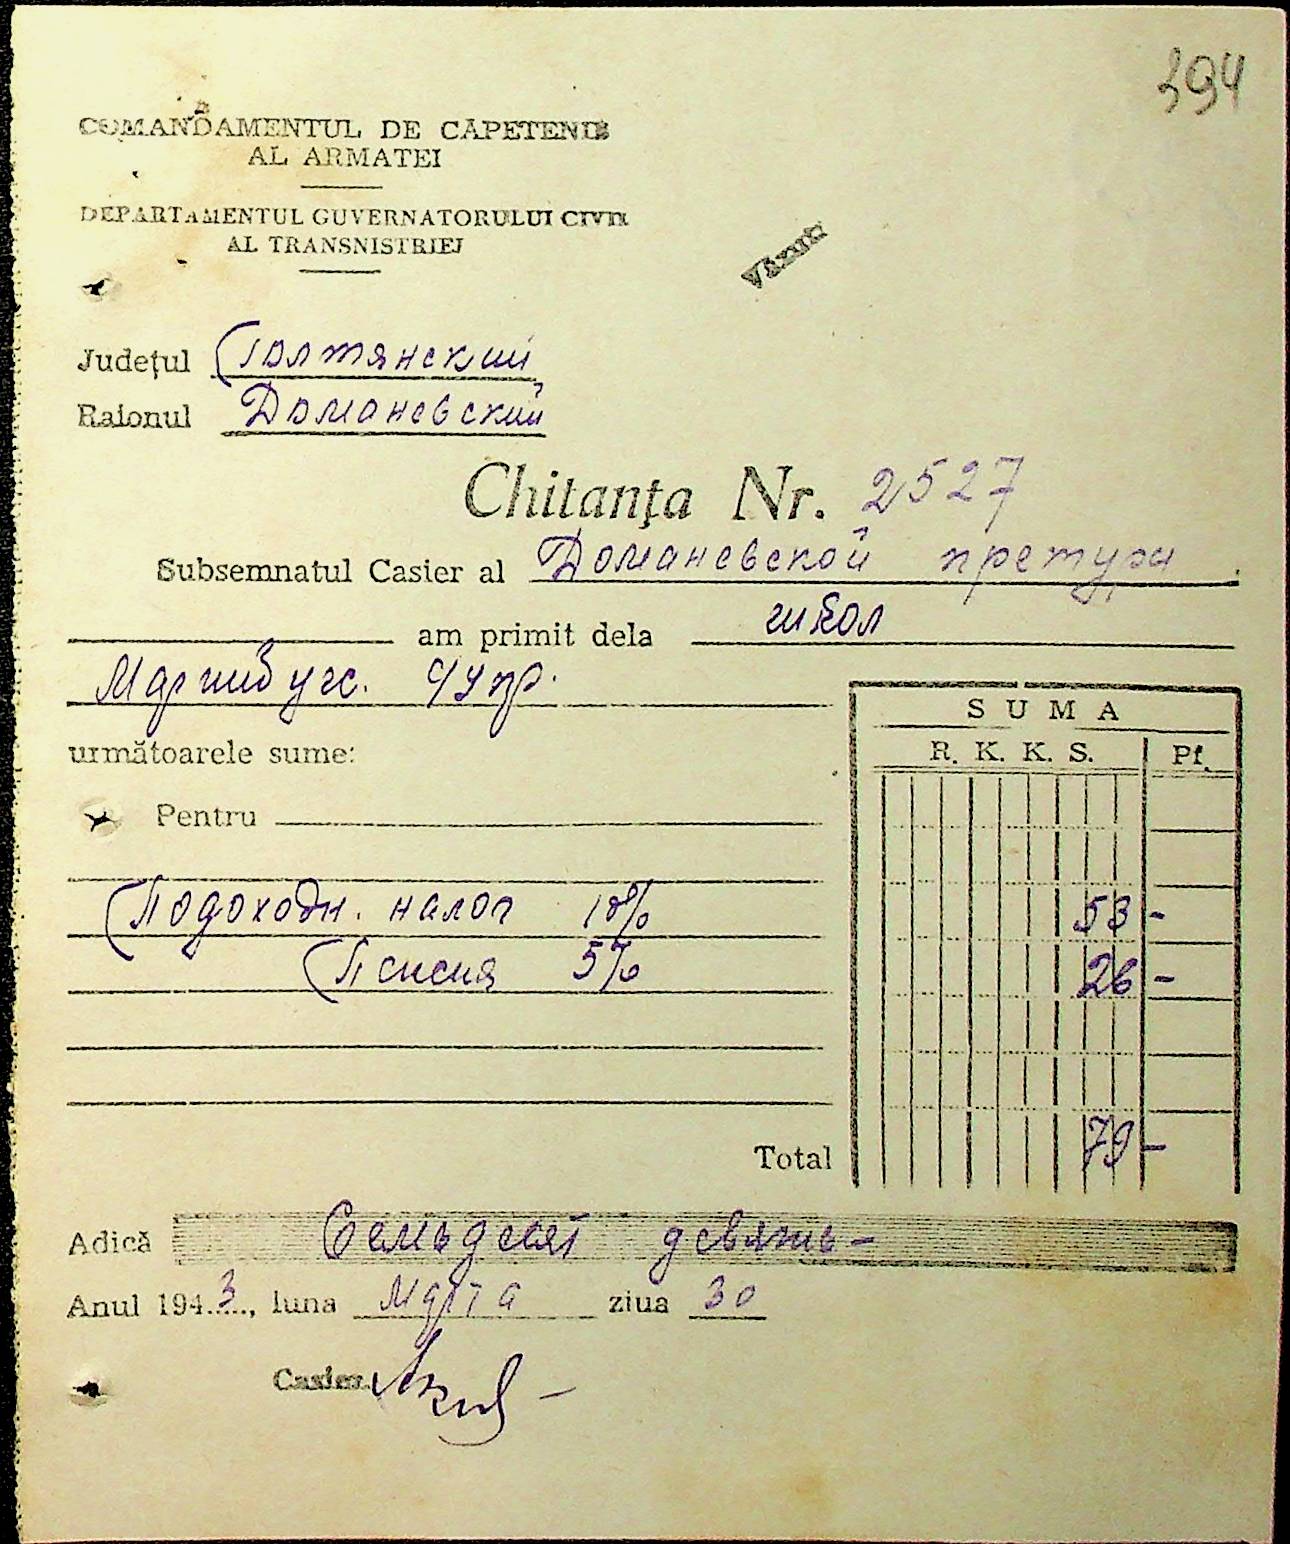 394
COMANDAMENTUL DE CAPETENIE
AL ARMATEI
DEPARTAMENTUL GUVERNATORULUI CIVIL
AL TRANSNISTRIEI
Văzut
Județul Голтянский
Raionul Доманевский
Chitanța Nr. 2527
Subsemnatul Casier al Доманевской претури
am primit dela школ
урр.
următoarele sume:
SUMA
R. K. K. S. Pf.
Pentru
Подоходн. налог 10% 53 -
Пенсия 5% 26 -
Total 79 -
Adică Семьдесят девять -
Anul 194.3.., luna Марта ziua 30
Casier